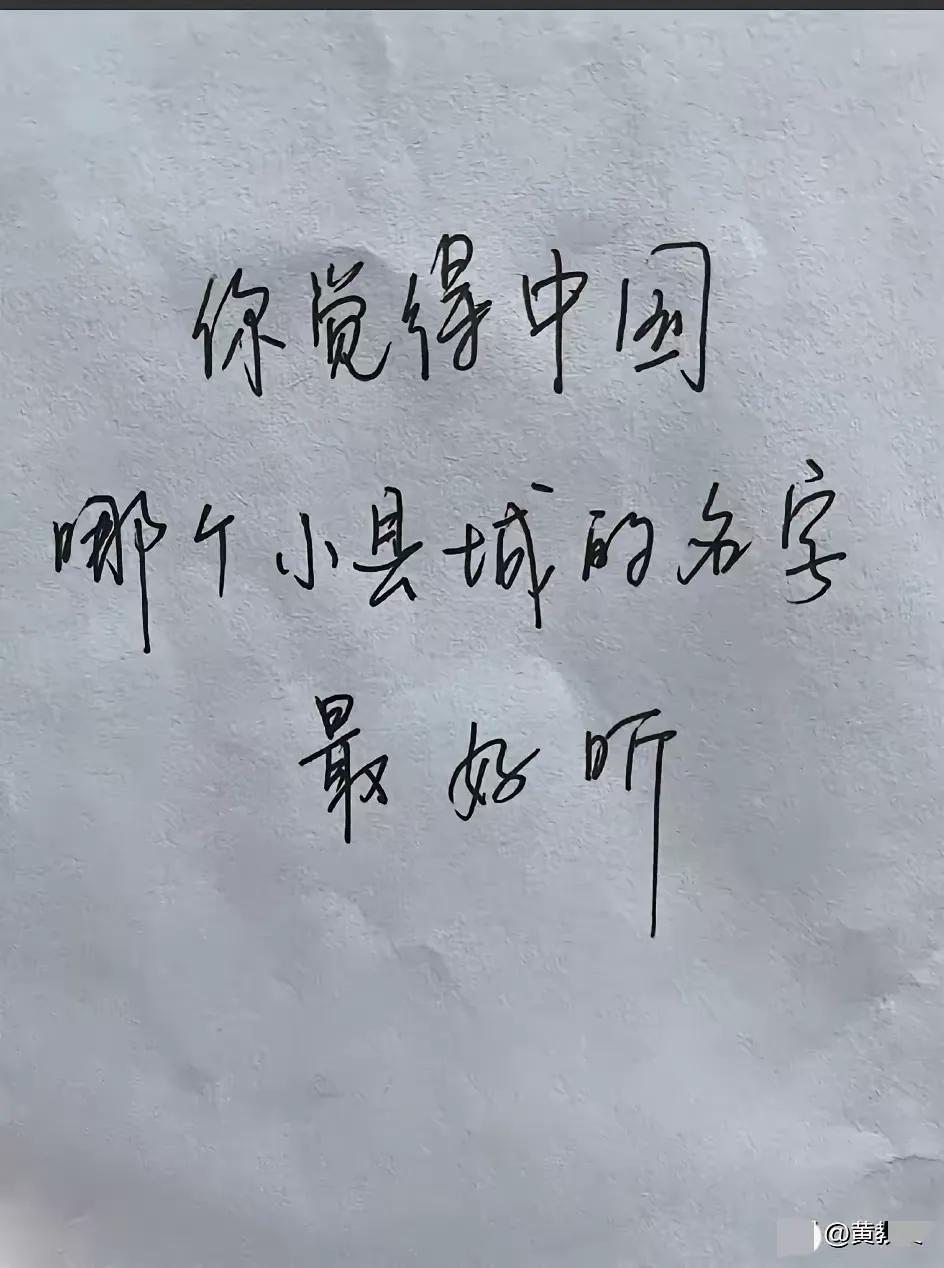 你觉得中国
哪个小县城的名字
最好听
@黄